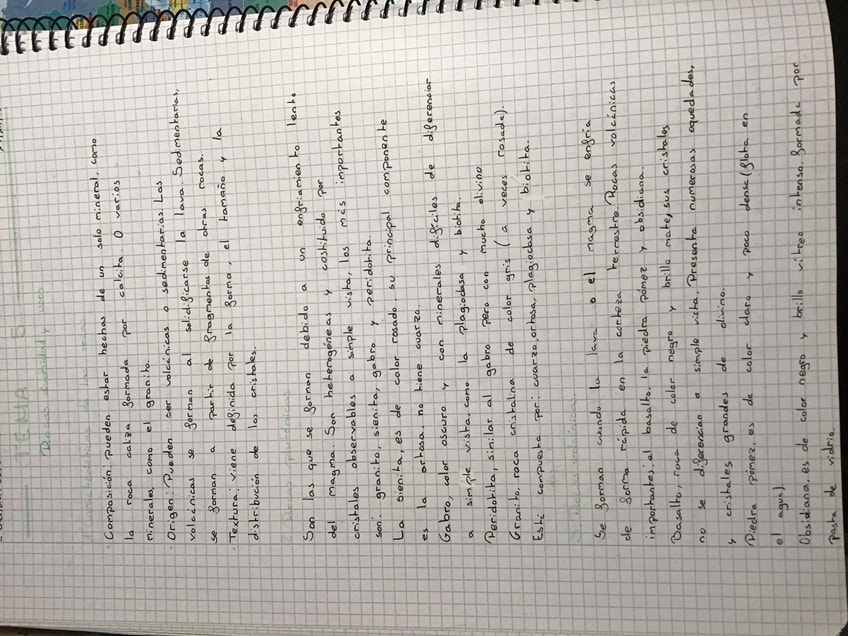 TEMA 5
Composición: pueden estar hechas de un solo mineral, como
la roca caliza formada por calcita. O varios
minerales como el granito.
Origen: Pueden cer volcánicas o sedimentarias. Las
volcánicas se forman al solidificarse la lava. Sedimentarias,
se forman a partir de fragmentos de otras rocas.
Textura: viene definida por la forma, el tamaño y la
distribución de los cristales.
Son las que se forman debido a un enfriamiento lento
del magma. Son heterogéneas y costituido por
cristales observables a simple vista, los más importantes
son: granito, sienita, gabro y peridotita.
La sienita, es de color rosado, su principal componente
es la ortosa, no tiene cuarzo.
Gabro, color oscuro y con minerales difíciles de diferenciar
a simple vista, como la plagioclasa y biotita.
Peridotita, similar al gabro pero con mucho olivino
Granito, roca cristalina de color gris (a veces rosado).
Esté compuesta por: cuarzo, ortosa, plagioclasa y biotita.
Se forman cuando la lava o el magma se enfría
de forma rápida en la corteza terrestre. Rocas volcánicas
importantes: el basalto, la piedra pómez y obsidiana.
Basalto, roca de color negro y brillo mate, sus cristales
no se diferencian a simple vista. Presenta numerosas oquedades,
y cristales grandes de olivino.
Piedra pómez, es de color claro y poco densa (flota en
el agua).
Obsidiana, es de color negro y brillo vítreo intenso, formada por
pasta de vidrio.